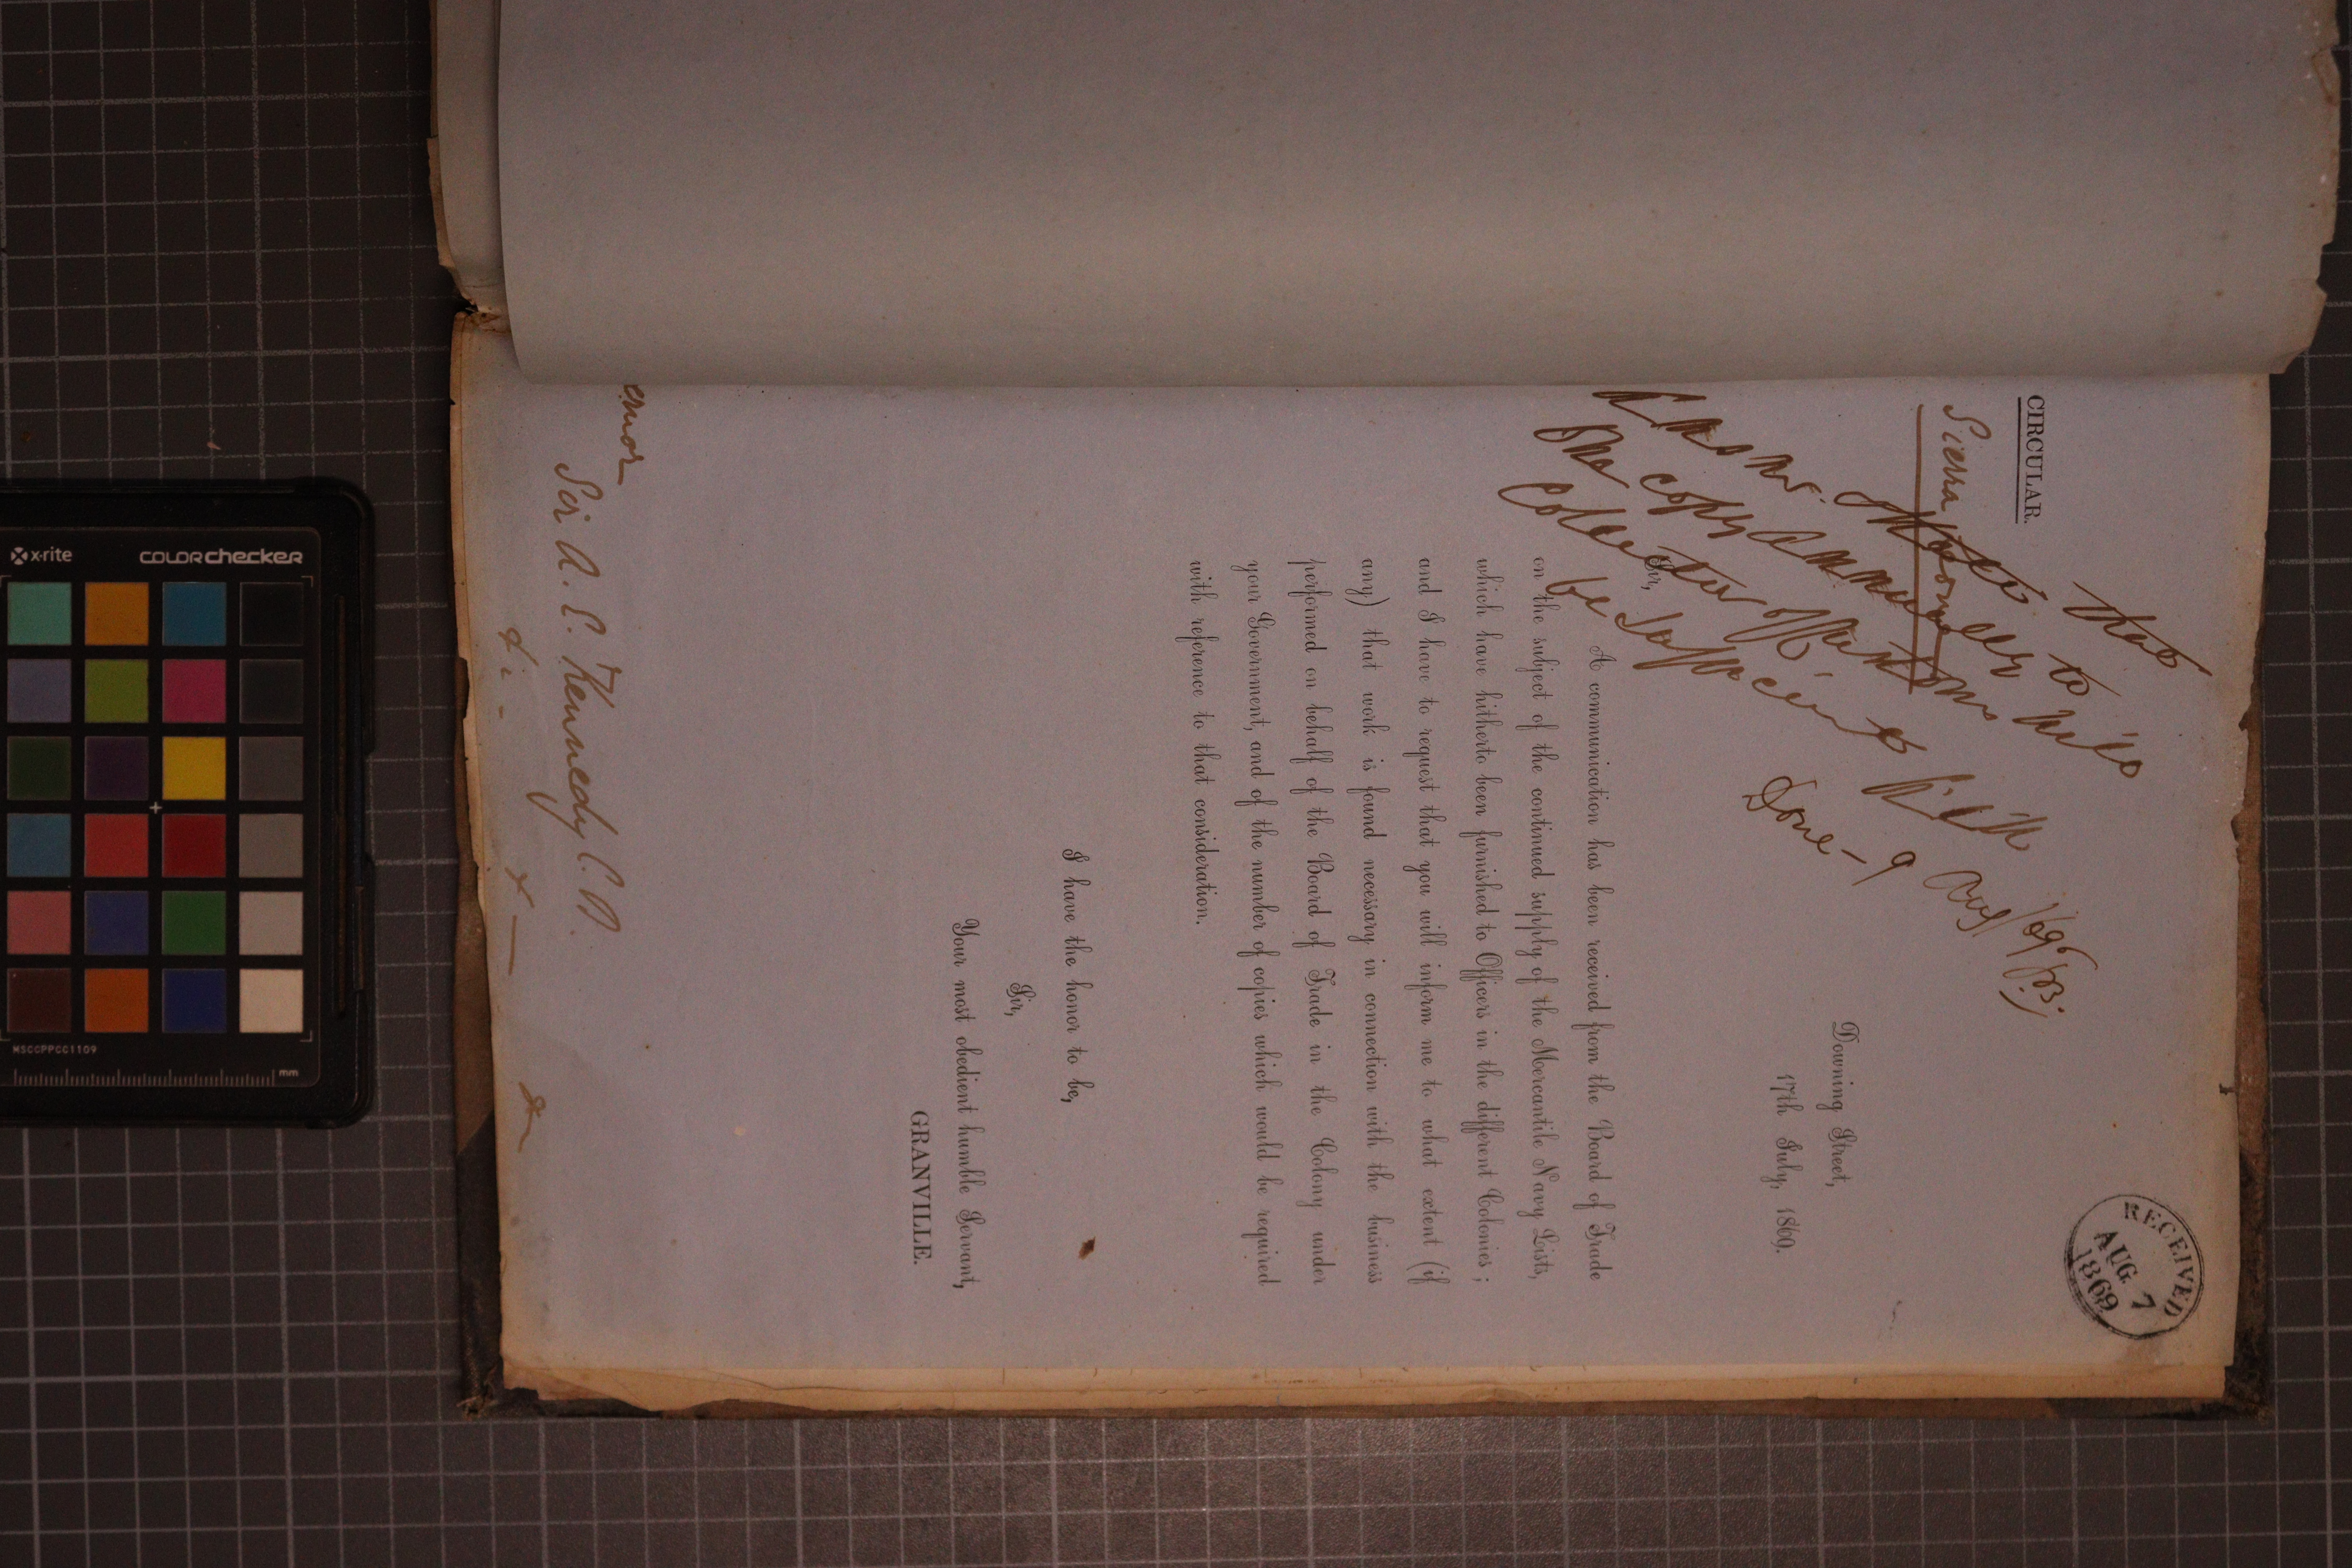 CIRCULAR.
Sierra Leone
RECEIVED
AUG 7
1869
Answer. that
One copy annually to
Collector of Customs will
be sufficient
Done - 9 Aug/69
Downing Street,
17th July, 1869.
Sir,
A communication has been received from the Board of Trade
on the subject of the continued supply of the Mercantile Navy Lists,
which have hitherto been furnished to Officers in the different Colonies;
and I have to request that you will inform me to what extent (if
any) that work is found necessary in connection with the business
performed on behalf of the Board of Trade in the Colony under
your Government, and of the number of copies which would be required
with reference to that consideration.
I have the honor to be,
Sir,
Your most obedient humble Servant,
GRANVILLE.
ernor
Sir A. E. Kennedy C.B.
x-rite colorchecker
MSCCPPCC1109
mm